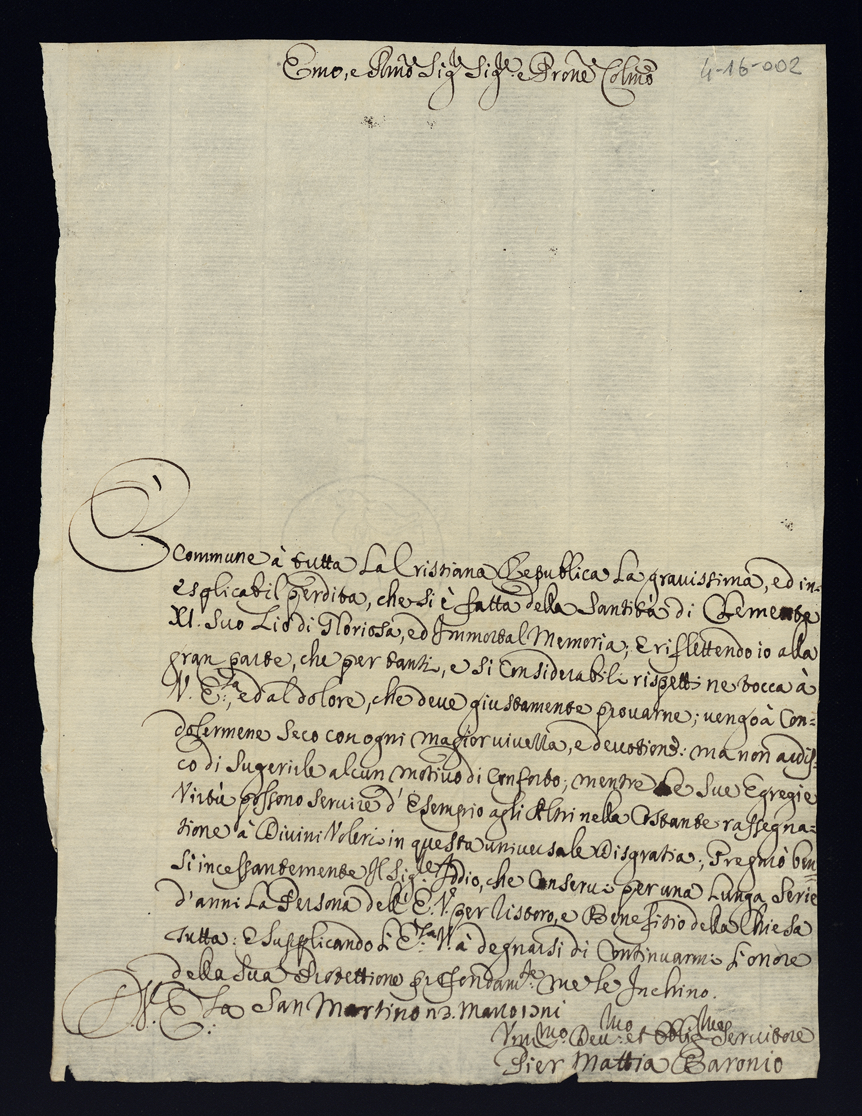 Emo, e Rmo Sigre Sigre e Prone Colmo
4-16-002
È commune à tutta La Cristiana Republica La gravissima, ed in-
esplicabil perdita, che si è fatta della Santità di Clemente
XI. Suo Zio di Gloriosa, ed Immortal Memoria; E riflettendo io alla
gran parte, che per tanti, e si Considerabili rispetti ne tocca à
V. E.za, ed al dolore, che deve giustamente provarne; vengo à Con=
dolermene Seco con ogni magior vivezza, e devotione: ma non ardis=
co di Sugerirle alcun motivo di Conforto; mentre Le Sue Egregie
Virtù possono Servire d'Esempio agli Altri nella Costante rassegna=
tione a' Divini Voleri in questa universale Disgratia; Pregmo ben=
si incessantemente Il Sigre Iddio, che Conservi per una Lunga Serie
d'anni La Persona dell' E. V. per ristoro, e Benefitio della Chiesa
Tutta: E Supplicando L'E.za V. à degnarsi di Continuarmi L'onore
della Sua Protettione profondamte me le Inchino.
Di V. E.za San Martino Marzo
Vmmo Devmo et Obligmo Servitore
Pier Mattia Baronio